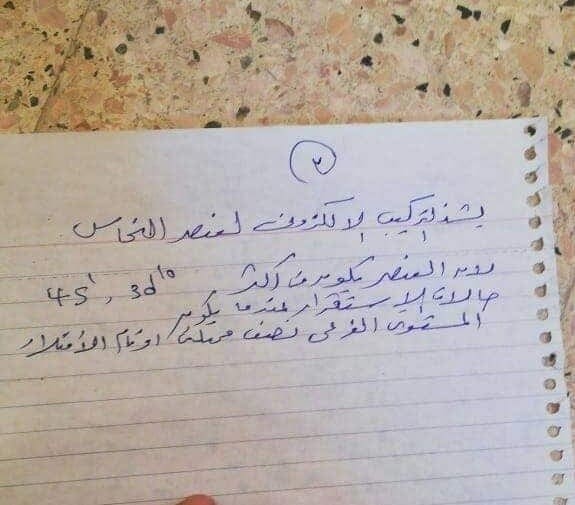 ٣
يشذ التركيب الإلكتروني لعنصر النحاس
لأن العنصر يكون في أكثر 4s¹, 3d¹⁰
حالات الاستقرار عندما يكون
المستوى الفرعي نصف ممتلئ او تام الأمتلاء